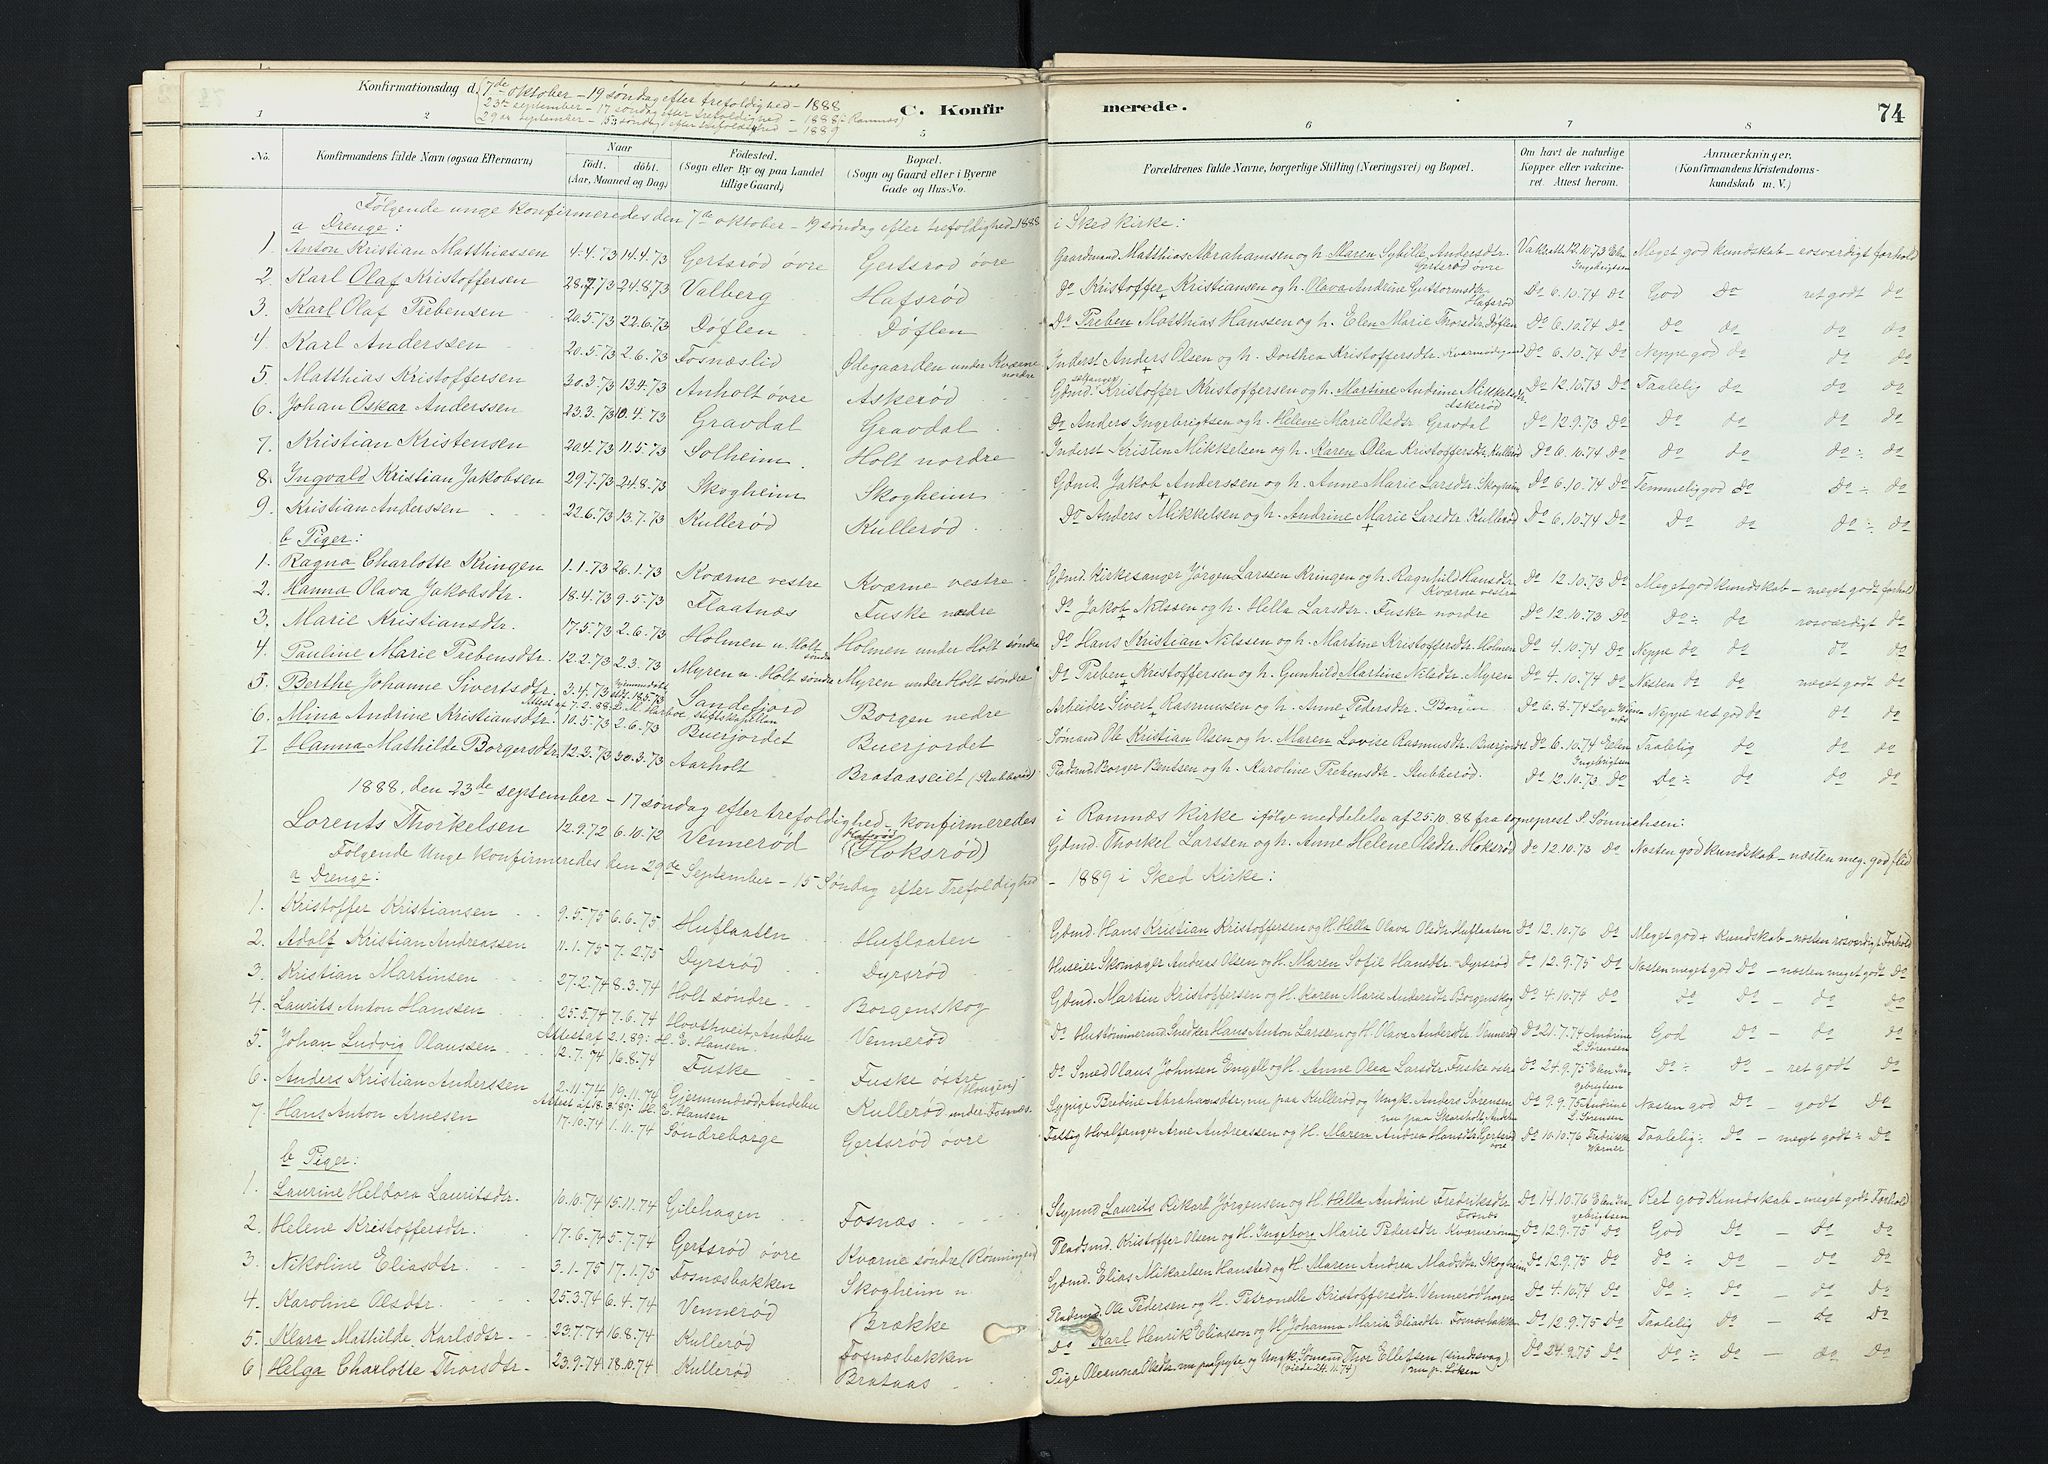 Konfirmationsdag d. 7de oktober – 19 søndag efter trefoldighed – 1888
23de september – 17 søndag efter trefoldighed – 1888 i Ramnæs
29de september – 15 søndag efter trefoldighed – 1889
C. Konfirmerede.
74
1 2 3 4 5 6 7 8
No. Konfirmandens fulde Navn (ogsaa Efternavn)
Naar født. døbt. (Aar, Maaned og Dag)
Fødested. (Sogn eller By og paa Landet tillige Gaard)
Bopæl. (Sogn og Gaard eller i Byerne Gade og Hus-No.
Forældrenes fulde Navne, borgerlige Stilling (Næringsvei) og Bopæl.
Om havt de naturlige Kopper eller vaccineret. Attest herom.
Anmærkninger, (Konfirmandens Kristendomskundskab m. V.)
Følgende unge konfirmeredes den 7de oktober – 19 søndag efter trefoldighed – 1888 i Sked kirke:
a Drenge:
1. Anton Kristian Matthiassen 4.4.73 14.4.73 Gertsrød øvre Gertsrod øvre Gaardmand Matthias Abrahamsen og h. Maren Sybille Andersdtr. Gertsrød øvre Vak. att. 12.10.73 Elen Ingebrigtsen Meget god kundskab – rosværdigt forhold
2. Karl Olaf Kristoffersen 28.7.73 24.8.73 Valberg Hafsrød Do Kristoffer Kristiansen og h. Olava Andrine Guttormsdtr. Hafsrød Do 6.10.74 Do God Do ret godt do
3. Karl Olaf Prebensen 20.5.73 22.6.73 Døflen Døflen Do Preben Matthias Hanssen og h. Elen Marie Thorsdtr. Døflen Do 6.10.74 Do Do do do do
4. Karl Anderssen 20.5.73 2.6.73 Fosnæslid Ødegaarden under Kværne nordre Inderst Anders Olsen og h. Dorthea Kristoffersdtr. Do 6.10.74 Do Neppe god do do do
5. Matthias Kristoffersen 30.3.73 13.4.73 Anholt øvre Askerød Gdmd. sælfanger Kristoffer Kristoffersen og h. Martine Andrine Mikkelsdtr. Askerød Do 12.10.73 Do Taalelig do do do
6. Johan Oskar Anderssen 23.3.73 10.4.73 Gravdal Gravdal Do Anders Ingebrigtsen og h. Helene Marie Olsdtr. Gravdal Do 12.9.73 Do Do do do do
7. Kristian Kristensen 20.4.73 11.5.73 Solheim Holt nordre Inderst Kristen Mikkelsen og h. Karen Olea Kristoffersdtr. Kullerød Do 6.10.74 Do Do do do do
8. Ingvald Kristian Jakobsen 29.7.73 24.8.73 Skogheim Skogheim Gdmd. Jakob Anderssen og h. Anne Marie Larsdtr. Skogheim Do 6.10.74 Do Temmelig god Do Do ÷ do
9. Kristian Anderssen 22.6.73 13.7.73 Kullerød Kullerød Do Anders Mikkelsen og h. Andrine Marie Larsdtr. Kullerød Do 6.10.74 Do Do do Do ÷ do
b Piger:
1. Ragna Charlotte Kringen 1.1.73 26.1.73 Kværne vestre Kværne vestre Gdmd. Kirkesanger Jørgen Larssen Kringen og h. Ragnhild Hansdtr. Kværne vestre Do 12.10.73 Do Meget god kundskab – meget godt forhold
2. Hanna Olava Jakobsdtr. 18.4.73 9.5.73 Flaatnæs Fuske nedre Do Jakob Nilssen og h. Hella Larsdtr. Fuske nordre Do 12.10.73 Do Do ÷ do rosværdigt do
3. Marie Kristiansdtr. 17.5.73 2.6.73 Holmen u. Holt søndre Holmen under Holt søndre Do Hans Kristian Nilssen og h. Martine Kristoffersdtr. Holmen Do 4.10.74 Do Neppe do do do do
4. Pauline Marie Prebensdtr. 12.2.73 2.3.73 Myren u. Holt søndre Myren under Holt søndre Do Preben Kristoffersen og h. Gunhild Martine Nilsdtr. Myren Do 4.10.74 Do Næsten do do meget godt do
5. Berthe Johanne Sivertsdtr. 3.4.73 hjemmedøbt 18.5.73 Sandefjord Borgen nedre Arbeider Sivert Rasmussen og h. Anne Pedersdtr. Borgen Do 6.8.74 Neppe ret god do do do
Attest af 7.2.88
6. Mina Andrine Kristiansdtr. 10.5.73 2.6.73 Buerjordet Buerjordet Sømand Ole Kristian Olsen og h. Maren Lovise Rasmusdtr. Buerjordet Do 6.10.74 Elen Ingebrigtsen Taalelig do do do
7. Hanna Mathilde Borgersdtr. 12.2.73 30.3.73 Aarholt Brataaseiet (Stubberød) Pladsmd. Borger Bentsen og h. Karoline Prebensdtr. Stubberød. Do 12.10.73 Do Do ÷ do do do
1888, den 23de september – 17 søndag efter trefoldighed – konfirmeredes i Ramnæs Kirke ifølge meddelelse af 25.10.88 fra sogneprest S. Sønnichsen:
Lorents Thorkelsen 12.9.72 6.10.72 Vennerød Hafsrød (Hoksrød) Gdmd. Thorkel Larssen og h. Anne Helene Olsdtr. Hoksrød Do 12.10.73 Do Næsten god kundskab – næsten meg. god flid
Følgende Unge konfirmeredes den 29de September – 15 Søndag efter Trefoldighed – 1889 i Sked Kirke:
a Drenge:
1. Kristoffer Kristiansen 9.5.75 6.6.75 Huflaaten Huflaaten Gdmd. Hans Kristian Kristoffersen og H. Hella Olava Olsdtr. Huflaaten Do 12.10.76 Do Meget god Kundskab – næsten rosværdigt Forhold
2. Adolf Kristian Andreassen 11.1.75 7.2.75 Dyrsrød Dyrsrød Huseier Skomager Andreas Olsen og H. Maren Sofie Hansdtr. Dyrsrød Do 12.9.75 Do Næsten meget god Do – næsten meget godt Do
3. Kristian Martinsen 27.2.74 8.3.74 Holt søndre Borgenskog Gdmd. Martin Kristoffersen og H. Karen Marie Andersdtr. Borgenskog Do 4.10.74 Do Do Do – do Do
4. Laurits Anton Hanssen 25.5.74 7.6.74 Hvosthveit, Andebu Vennerød Do Hustømmermd Snedker Hans Anton Larssen og H. Olava Andersdtr. Vennerød Do 21.7.74 Andrine L. Sørensen God Do – do Do
Attest af 2.1.89: H. E. Hansen.
5. Johan Ludvig Olaussen 12.7.74 16.8.74 Fuske Fuske østre (Haugen) Do Smed Olaus Johnsen Engell og H. Anne Olea Larsdtr. Fuske østre Do 24.9.75 Elen Ingebrigtsen Do ÷ Do – ret godt do
6. Anders Kristian Anderssen 2.11.74 19.11.74 Gjermundrød, Andebu Kullerød under Fosnæs. Sypige Bredine Abrahamsdtr., nu paa Kullerød og Ungk. Anders Sørensen nu paa Skorsholt, Andebu Do 9.9.75 Andrine L. Sørensen Næsten god Do – godt Do
Attest af 18.3.89: H. E. Hansen
7. Hans Anton Arnesen 17.10.74 1.11.74 Søndreborge Gertsrød øvre Fattig Hvalfanger Arne Andreassen og H. Maren Andrea Hansdtr. Gertsrød øvre Do 10.10.76 Fredrikke Warner Taalelig ÷ Do – meget godt ÷ Do
b Piger:
1. Laurine Heldora Lauritsdtr. 10.10.74 15.11.74 Gilehagen Fosnæs Styrmd Laurits Rikart Jørgensen og H. Hella Andrine Fredriksdtr. Fosnæs Do 14.10.76 Elen Ingebrigtsen Ret god Kundskab – meget godt Forhold
2. Helene Kristoffersdtr. 17.6.74 5.7.74 Gertsrød øvre Kværne søndre (Rønningen) Pladsmd. Kristoffer Olsen og H. Ingeborg Marie Pedersdtr. Kværnerønning Do 12.9.75 Do God Do – Do Do
3. Nikoline Eliasdtr. 3.1.75 17.1.75 Fosnæsbakken Skogheim u. Gdmd. Elias Mikaelsen Hansted og H. Maren Andrea Madsdtr. Skogheim Do 12.9.75 Do Do ÷ Do – do Do
4. Karoline Olsdtr. 25.3.74 6.4.74 Vennerød Brække Pladsmd. Ole Pedersen og H. Petronelle Kristoffersdtr. Vennerødhagen Do 4.10.74 Do Do ÷ Do – do Do
5. Klara Mathilde Karlsdtr. 23.7.74 16.8.74 Kullerød Fosnæsbakken Do Karl Henrik Eliasson og H. Johanna Maria Eliasdtr. Fosnæsbakken Do 12.9.75 Do Taalelig Do – Do Do
6 Helga Charlotte Thorsdtr. 23.9.74 18.10.74 Kullerød Brataas Pige Oleanna Olsdtr. nu paa Gryte og Ungk. Sømand Thor Ellefsen (sindssvag) (viede 24.11.74) nu p. Løken Do 24.9.75 Do Do ÷ Do – do Do